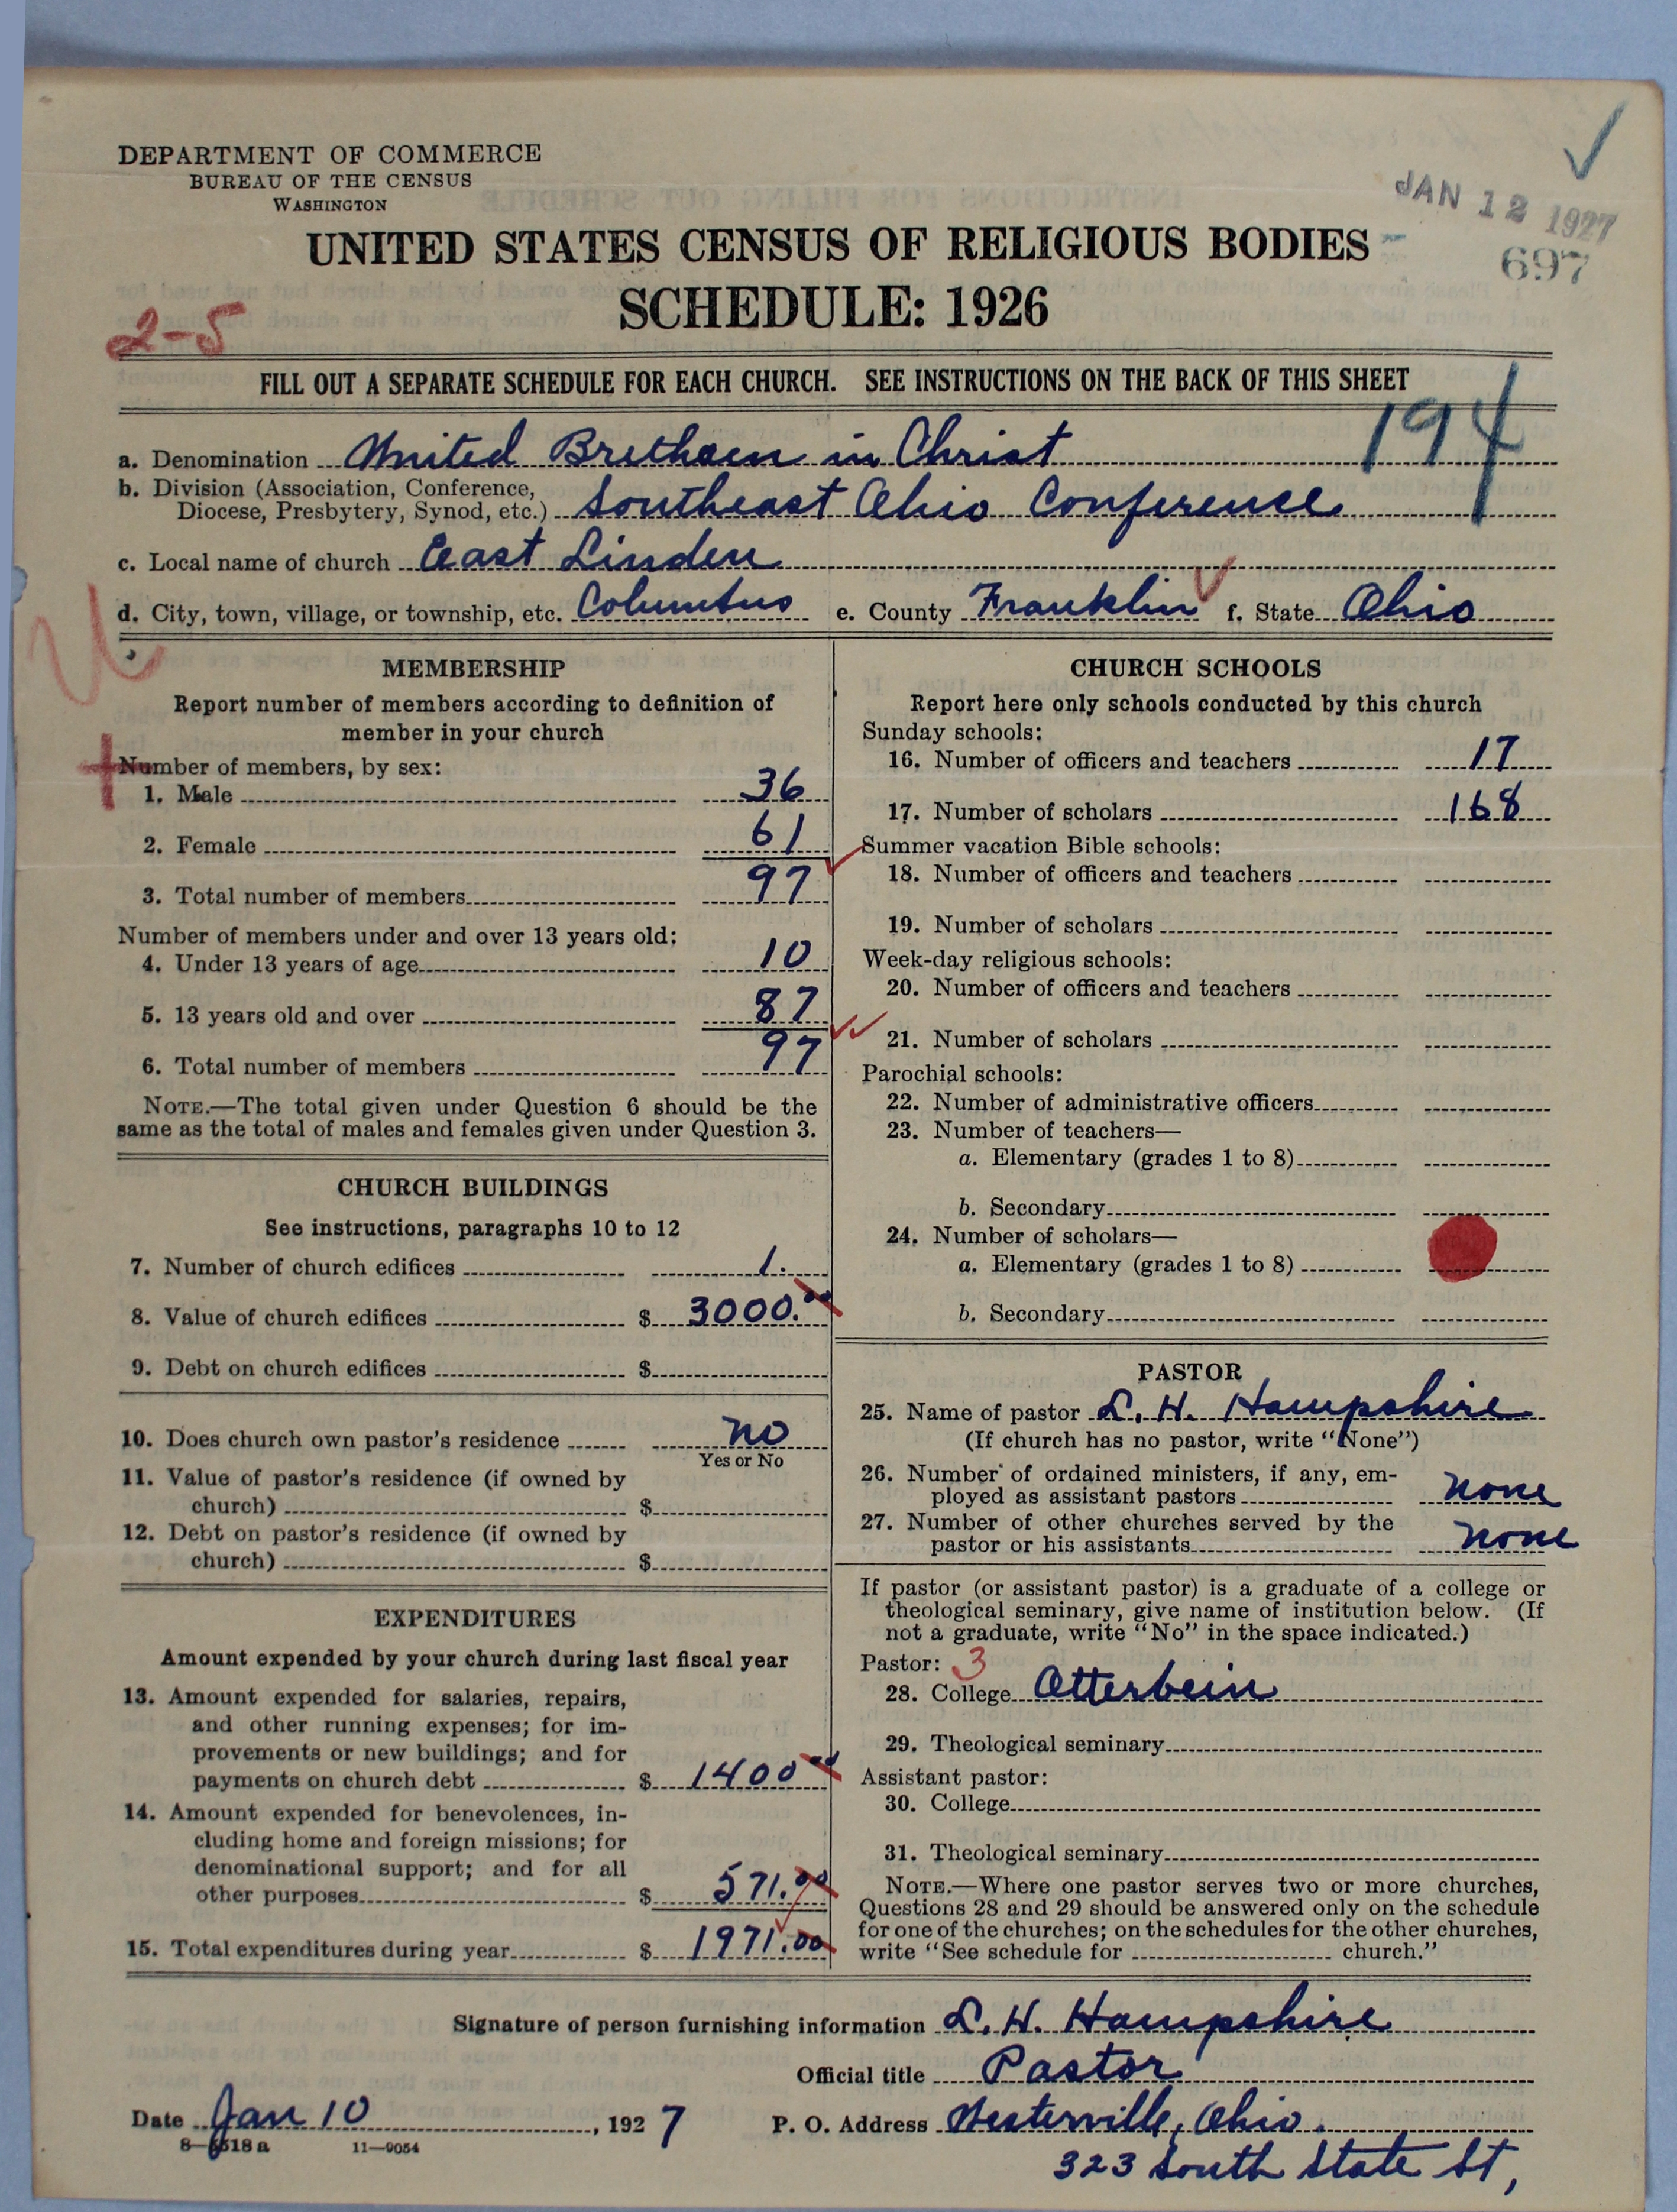 DEPARTMENT OF COMMERCE
BUREAU OF THE CENSUS
WASHINGTON
JAN 12 1927
697
UNITED STATES CENSUS OF RELIGIOUS BODIES
SCHEDULE: 1926
2-5
FILL OUT A SEPARATE SCHEDULE FOR EACH CHURCH. SEE INSTRUCTIONS ON THE BACK OF THIS SHEET
194
a. Denomination United Brethern in Christ
b. Division (Association, Conference,
Diocese, Presbytery, Synod, etc.) Southeast Ohio Conference
c. Local name of church East Linden
d. City, town, village, or township, etc. Columbus e. County Franklin f. State Ohio
MEMBERSHIP
Report number of members according to definition of
member in your church
Number of members, by sex:
1. Male 36
2. Female 61
3. Total number of members 97
Number of members under and over 13 years old:
4. Under 13 years of age 10
5. 13 years old and over 87
6. Total number of members 97
NOTE.—The total given under Question 6 should be the
same as the total of males and females given under Question 3.
CHURCH BUILDINGS
See instructions, paragraphs 10 to 12
7. Number of church edifices 1.
8. Value of church edifices $ 3000.00
9. Debt on church edifices $
10. Does church own pastor's residence no
Yes or No
11. Value of pastor's residence (if owned by
church) $
12. Debt on pastor's residence (if owned by
church) $
EXPENDITURES
Amount expended by your church during last fiscal year
13. Amount expended for salaries, repairs,
and other running expenses; for im-
provements or new buildings; and for
payments on church debt $ 1400 00
14. Amount expended for benevolences, in-
cluding home and foreign missions; for
denominational support; and for all
other purposes $ 571.00
15. Total expenditures during year $ 1971.00
CHURCH SCHOOLS
Report here only schools conducted by this church
Sunday schools:
16. Number of officers and teachers 17
17. Number of scholars 168
Summer vacation Bible schools:
18. Number of officers and teachers
19. Number of scholars
Week-day religious schools:
20. Number of officers and teachers
21. Number of scholars
Parochial schools:
22. Number of administrative officers
23. Number of teachers—
a. Elementary (grades 1 to 8)
b. Secondary
24. Number of scholars—
a. Elementary (grades 1 to 8)
b. Secondary
PASTOR
25. Name of pastor L. H. Hampshire
(If church has no pastor, write "None")
26. Number of ordained ministers, if any, em-
ployed as assistant pastors none
27. Number of other churches served by the
pastor or his assistants none
If pastor (or assistant pastor) is a graduate of a college or
theological seminary, give name of institution below. (If
not a graduate, write "No" in the space indicated.)
Pastor: 3
28. College Otterbein
29. Theological seminary
Assistant pastor:
30. College
31. Theological seminary
NOTE.—Where one pastor serves two or more churches,
Questions 28 and 29 should be answered only on the schedule
for one of the churches; on the schedules for the other churches,
write "See schedule for church."
Signature of person furnishing information L. H. Hampshire
Official title Pastor
Date Jan 10, 1927 P. O. Address Westerville, Ohio.
8—5518 a 11—9054
323 South State St,